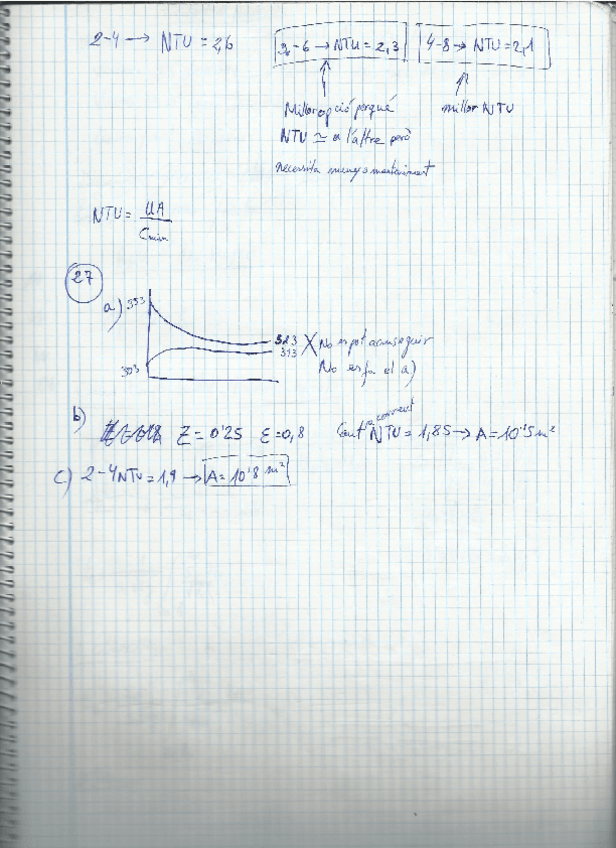 2-4 → NTU = 2,6
3-6 → NTU = 2,3
4-8 → NTU = 2,1
Millor opció perquè
NTU ≃ a l'altre però
necessita menys manteniment
millor NTU
NTU = UA / Cmin
27
a) 353
323
313
303
X No es pot aconseguir
No es fa el a)
b) Z = 0'25 ε = 0,8 NTU = 1,85 → A = 10'5 m²
c) 2-4 NTU = 1,9 → A = 10'8 m²